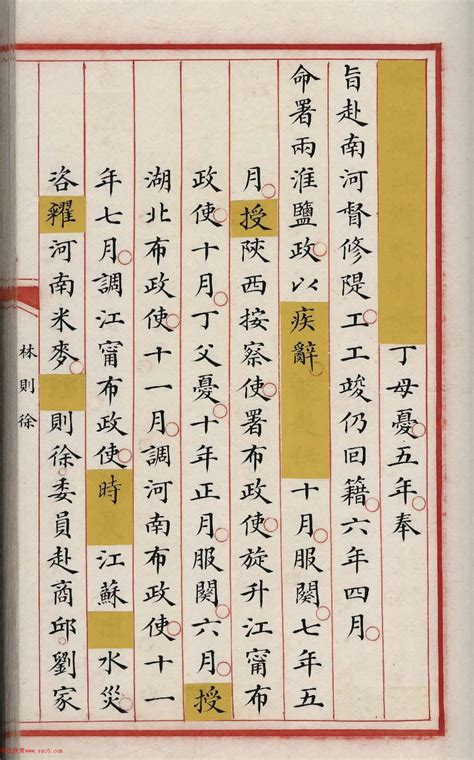 丁母憂五年奉
旨赴南河督修隄工工竣仍回籍六年四月
命署兩淮鹽政以疾辭十月服闋七年五
月授陝西按察使署布政使旋升江甯布
政使十月丁父憂十年正月服闋六月授
湖北布政使十一月調河南布政使十一
年七月調江甯布政使時江蘇水災
咨糴河南米麥則徐委員赴商邱劉家
林則徐
www.yac8.com